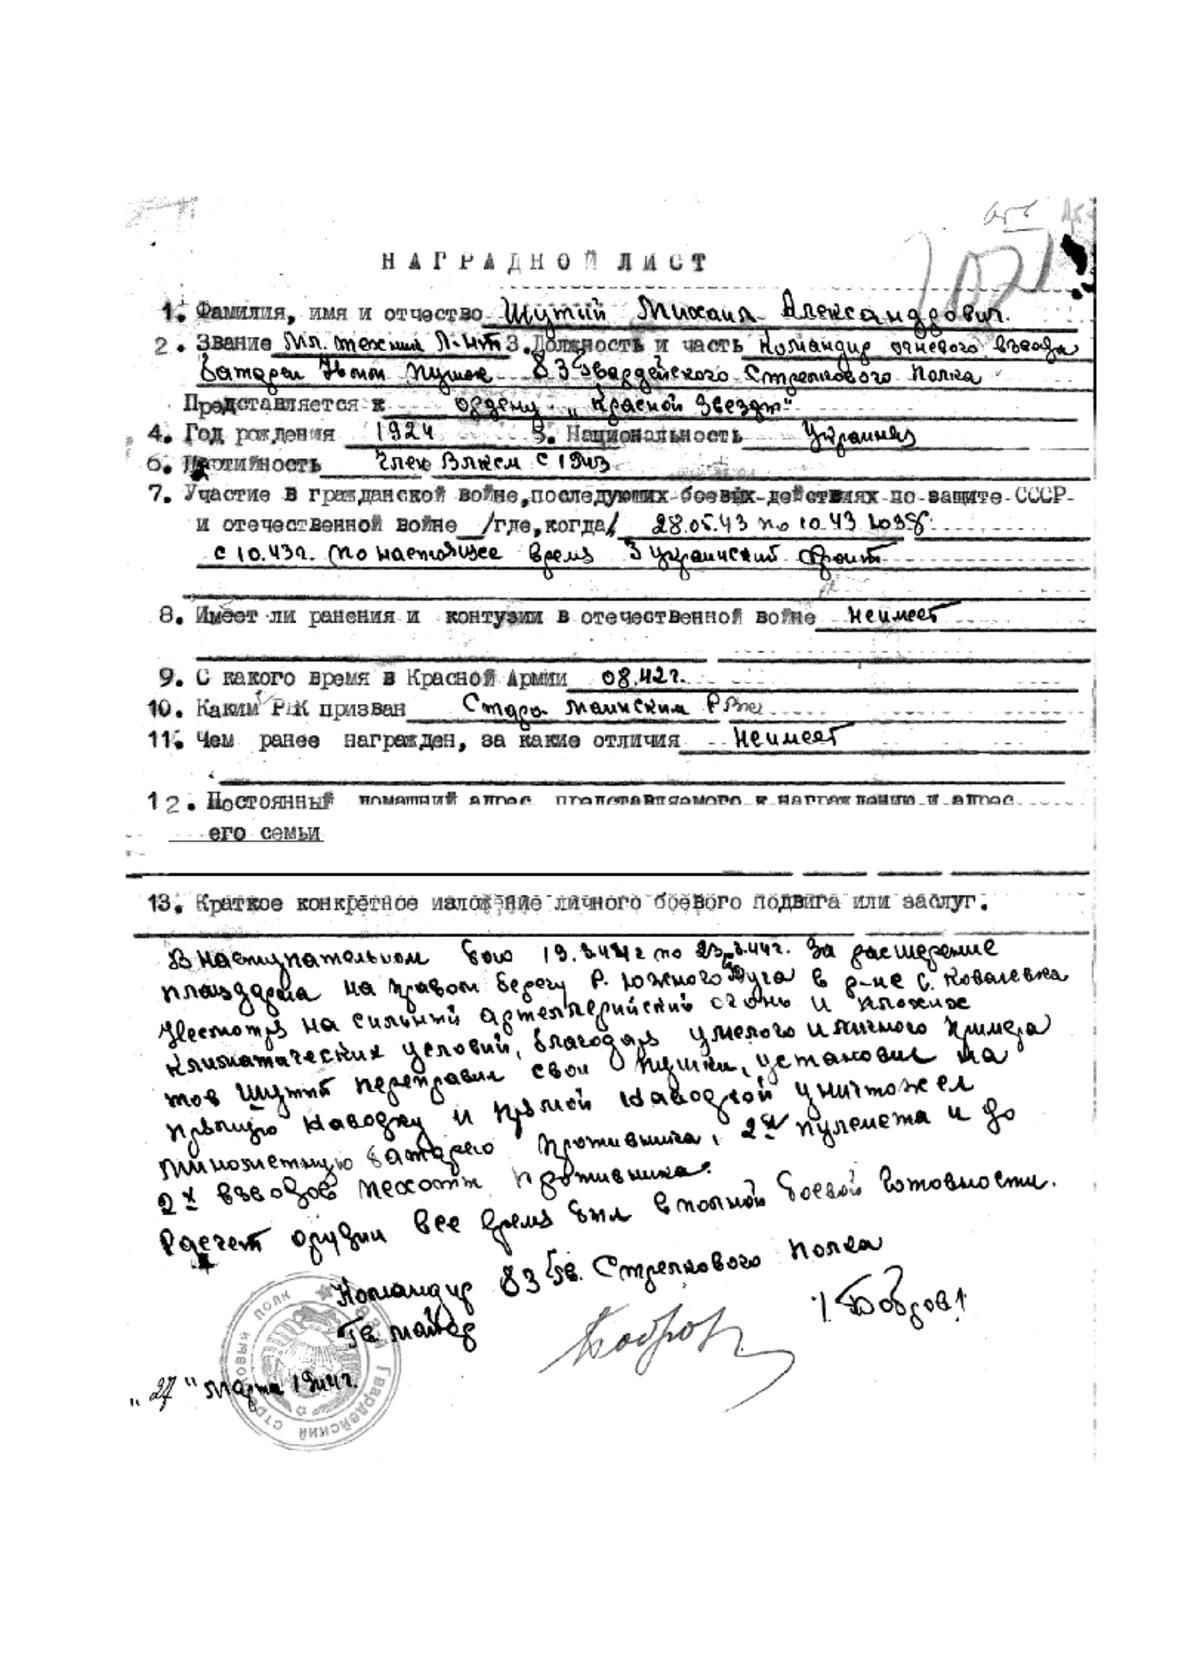 НАГРАДНОЙ ЛИСТ
1. Фамилия, имя и отчество Шутий Михаил Александрович.
2. Звание Мл. техник Л-нт 3. Должность и часть Командир огневого взвода
Батареи 45мм пушек 83 Гвардейского Стрелкового Полка
Представляется к ордену „Красной Звезды"
4. Год рождения 1924 5. Национальность Украинец
6. Партийность Член Влксм с 1943
7. Участие в гражданской войне, последующих боевых действиях по защите СССР
и отечественной войне /где, когда/ 28.05.43 по 10.43 ЮЗФ
с 10.43г. по настоящее время 3 Украинский фронт
8. Имеет ли ранения и контузии в отечественной войне неимеет
9. С какого время в Красной Армии 08.42г.
10. Каким РВК призван Старо Маинским РВК
11. Чем ранее награжден, за какие отличия неимеет
12. Постоянный домашний адрес представляемого к награждению и адрес
его семьи
13. Краткое конкретное изложение личного боевого подвига или заслуг.
В наступательном бою 19.3.44г по 23.3.44г. За расшерение
плацдарма на правом берегу р. Южного Буга в р-не с. Ковалевка
Несмотря на сильный артеллерийский огонь и плохих
климатических условий, благодаря умелого и личного примера
тов Шутий переправил свои пушки, установил на
прямую наводку и прямой наводкой уничтожел
минометную батарею противника, 2х пулемета и до
2х взводов пехоты противника.
Расчет орудии все время был в полной боевой готовности.
Командир 83 Гв. Стрелкового Полка
Гв. майор Бобров /Бобров/
„27" марта 1944г.
83й Гвардейский стрелковый полк